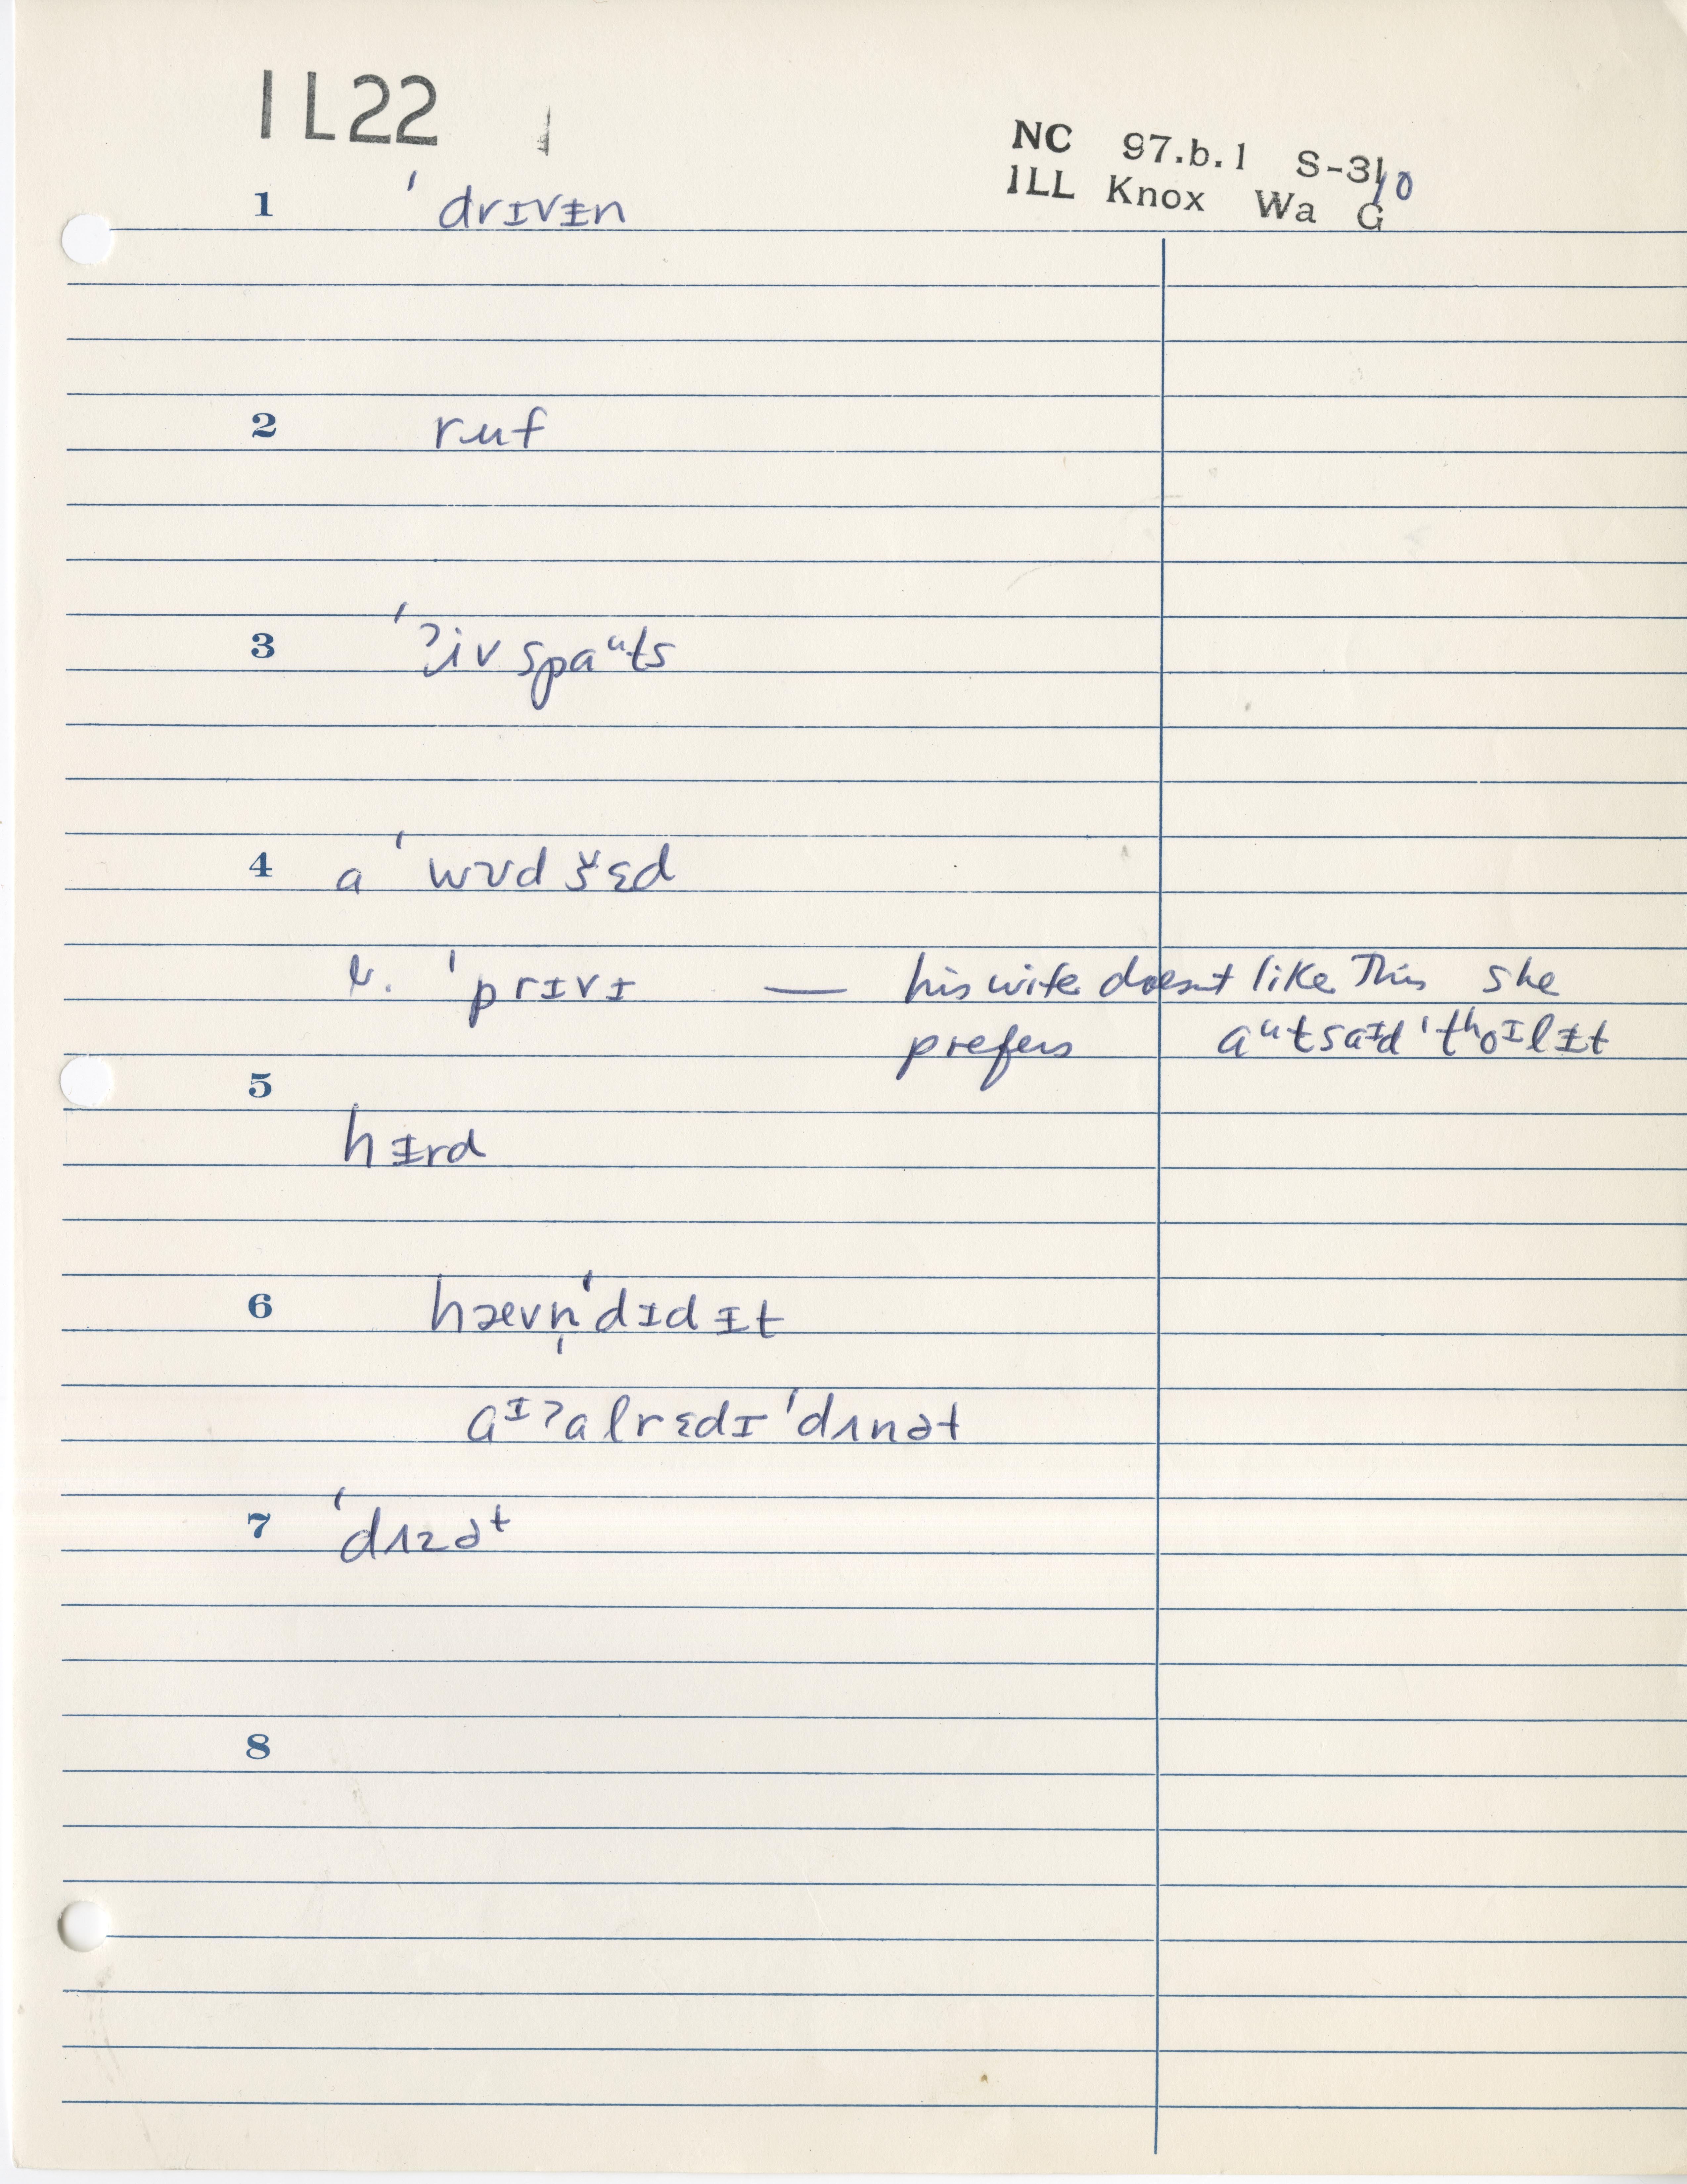 IL22 1
NC 97.b.1 S-3/10
ILL Knox Wa G
1 ˈdrɪvɨn
2 ruf
3 ˈʔivspaᵘts
4 a ˈwʊd šɛd
b. ˈprɪvɪ — his wife doesnt like This she
prefers aᵘtsaɪd ˈtʰoᶦlɨt
5
hɨrd
6 hævn̩ˈdɪd ɨt
aᶦʔalrɛdɪ ˈdʌnət
7 ˈdʌzəᵗ
8